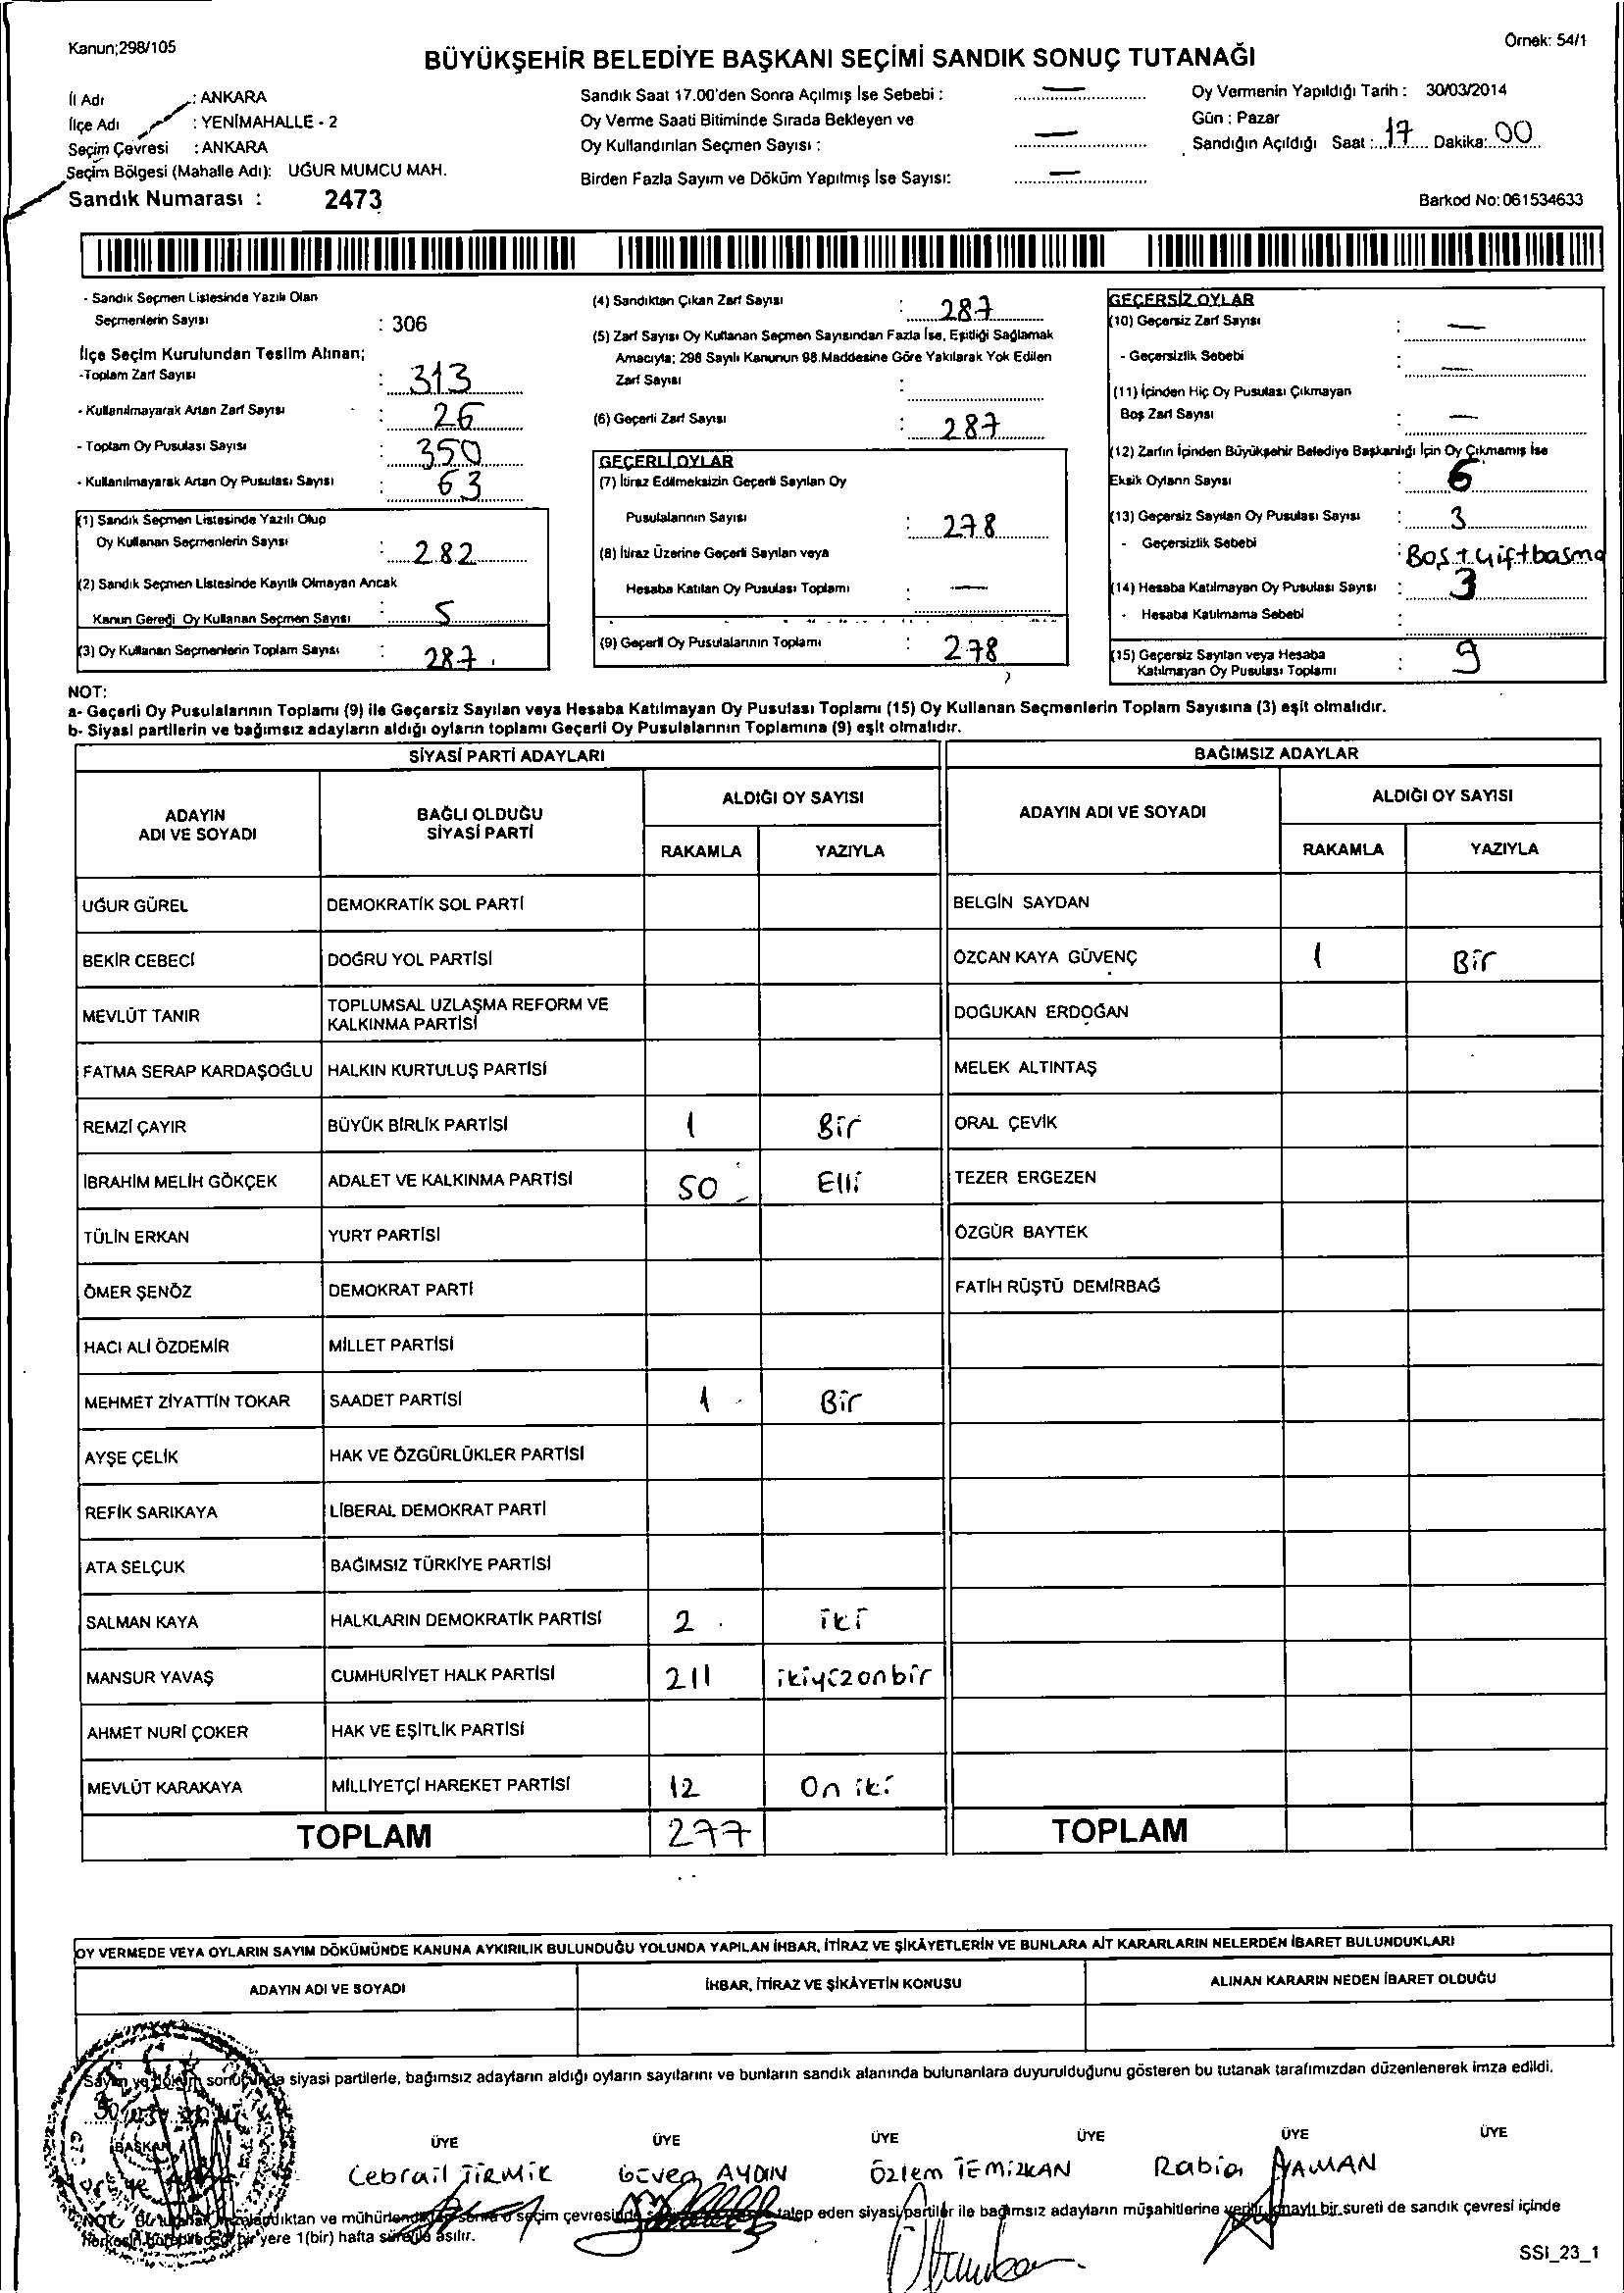 Kanun;298/105
Örnek: 54/1
BÜYÜKŞEHİR BELEDİYE BAŞKANI SEÇİMİ SANDIK SONUÇ TUTANAĞI
İl Adı : ANKARA
İlçe Adı : YENİMAHALLE - 2
Seçim Çevresi : ANKARA
Seçim Bölgesi (Mahalle Adı): UĞUR MUMCU MAH.
Sandık Numarası : 2473
Sandık Saat 17.00'den Sonra Açılmış İse Sebebi : —
Oy Verme Saati Bitiminde Sırada Bekleyen ve
Oy Kullandırılan Seçmen Sayısı : —
Birden Fazla Sayım ve Döküm Yapılmış İse Sayısı: —
Oy Vermenin Yapıldığı Tarih : 30/03/2014
Gün : Pazar
Sandığın Açıldığı Saat : 17 Dakika: 00
Barkod No:061534633
- Sandık Seçmen Listesinde Yazılı Olan
Seçmenlerin Sayısı : 306
İlçe Seçim Kurulundan Teslim Alınan;
-Toplam Zarf Sayısı : 313
- Kullanılmayarak Artan Zarf Sayısı : 26
- Toplam Oy Pusulası Sayısı : 350
- Kullanılmayarak Artan Oy Pusulası Sayısı : 63
(1) Sandık Seçmen Listesinde Yazılı Olup
Oy Kullanan Seçmenlerin Sayısı : 282
(2) Sandık Seçmen Listesinde Kayıtlı Olmayan Ancak
Kanun Gereği Oy Kullanan Seçmen Sayısı : 5
(3) Oy Kullanan Seçmenlerin Toplam Sayısı : 287
(4) Sandıktan Çıkan Zarf Sayısı : 287
(5) Zarf Sayısı Oy Kullanan Seçmen Sayısından Fazla İse, Eşitliği Sağlamak
Amacıyla; 298 Sayılı Kanunun 98.Maddesine Göre Yakılarak Yok Edilen
Zarf Sayısı :
(6) Geçerli Zarf Sayısı : 287
GEÇERLİ OYLAR
(7) İtiraz Edilmeksizin Geçerli Sayılan Oy
Pusulalarının Sayısı : 278
(8) İtiraz Üzerine Geçerli Sayılan veya
Hesaba Katılan Oy Pusulası Toplamı : —
(9) Geçerli Oy Pusulalarının Toplamı : 278
GEÇERSİZ OYLAR
(10) Geçersiz Zarf Sayısı : —
- Geçersizlik Sebebi : —
(11) İçinden Hiç Oy Pusulası Çıkmayan
Boş Zarf Sayısı : —
(12) Zarfın İçinden Büyükşehir Belediye Başkanlığı İçin Oy Çıkmamış İse
Eksik Oyların Sayısı : 6
(13) Geçersiz Sayılan Oy Pusulası Sayısı : 3
- Geçersizlik Sebebi : Boş + Çift basma
(14) Hesaba Katılmayan Oy Pusulası Sayısı : 3
- Hesaba Katılmama Sebebi :
(15) Geçersiz Sayılan veya Hesaba
Katılmayan Oy Pusulası Toplamı : 9
NOT:
a- Geçerli Oy Pusulalarının Toplamı (9) ile Geçersiz Sayılan veya Hesaba Katılmayan Oy Pusulası Toplamı (15) Oy Kullanan Seçmenlerin Toplam Sayısına (3) eşit olmalıdır.
b- Siyasi partilerin ve bağımsız adayların aldığı oyların toplamı Geçerli Oy Pusulalarının Toplamına (9) eşit olmalıdır.
SİYASİ PARTİ ADAYLARI BAĞIMSIZ ADAYLAR
ADAYIN
ADI VE SOYADI
BAĞLI OLDUĞU
SİYASİ PARTİ
ALDIĞI OY SAYISI
RAKAMLA YAZIYLA
ADAYIN ADI VE SOYADI
ALDIĞI OY SAYISI
RAKAMLA YAZIYLA
UĞUR GÜREL DEMOKRATİK SOL PARTİ BELGİN SAYDAN
BEKİR CEBECİ DOĞRU YOL PARTİSİ ÖZCAN KAYA GÜVENÇ 1 Bir
MEVLÜT TANIR TOPLUMSAL UZLAŞMA REFORM VE
KALKINMA PARTİSİ DOĞUKAN ERDOĞAN
FATMA SERAP KARDAŞOĞLU HALKIN KURTULUŞ PARTİSİ MELEK ALTINTAŞ
REMZİ ÇAYIR BÜYÜK BİRLİK PARTİSİ 1 Bir ORAL ÇEVİK
İBRAHİM MELİH GÖKÇEK ADALET VE KALKINMA PARTİSİ 50 Elli TEZER ERGEZEN
TÜLİN ERKAN YURT PARTİSİ ÖZGÜR BAYTEK
ÖMER ŞENÖZ DEMOKRAT PARTİ FATİH RÜŞTÜ DEMİRBAĞ
HACI ALİ ÖZDEMİR MİLLET PARTİSİ
MEHMET ZİYATTİN TOKAR SAADET PARTİSİ 1 Bir
AYŞE ÇELİK HAK VE ÖZGÜRLÜKLER PARTİSİ
REFİK SARIKAYA LİBERAL DEMOKRAT PARTİ
ATA SELÇUK BAĞIMSIZ TÜRKİYE PARTİSİ
SALMAN KAYA HALKLARIN DEMOKRATİK PARTİSİ 2 iki
MANSUR YAVAŞ CUMHURİYET HALK PARTİSİ 211 ikiyüzonbir
AHMET NURİ ÇOKER HAK VE EŞİTLİK PARTİSİ
MEVLÜT KARAKAYA MİLLİYETÇİ HAREKET PARTİSİ 12 On iki
TOPLAM 277 TOPLAM
OY VERMEDE VEYA OYLARIN SAYIM DÖKÜMÜNDE KANUNA AYKIRILIK BULUNDUĞU YOLUNDA YAPILAN İHBAR, İTİRAZ VE ŞİKÂYETLERİN VE BUNLARA AİT KARARLARIN NELERDEN İBARET BULUNDUKLARI
ADAYIN ADI VE SOYADI İHBAR, İTİRAZ VE ŞİKÂYETİN KONUSU ALINAN KARARIN NEDEN İBARET OLDUĞU
Sayım ve döküm sonucunda siyasi partilerle, bağımsız adayların aldığı oyların sayılarını ve bunların sandık alanında bulunanlara duyurulduğunu gösteren bu tutanak tarafımızdan düzenlenerek imza edildi.
BAŞKAN ÜYE ÜYE ÜYE ÜYE ÜYE ÜYE
Cebrail TİRMİK AYDIN Özlem TEMİZKAN Rabia YAMAN
NOT: Bu tutanak ve mühürlendikten sonra o seçim çevresinde talep eden siyasi partiler ile bağımsız adayların müşahitlerine verilir, onaylı bir sureti de sandık çevresi içinde
herkesin görebileceği bir yere 1(bir) hafta süreyle asılır.
SSI_23_1